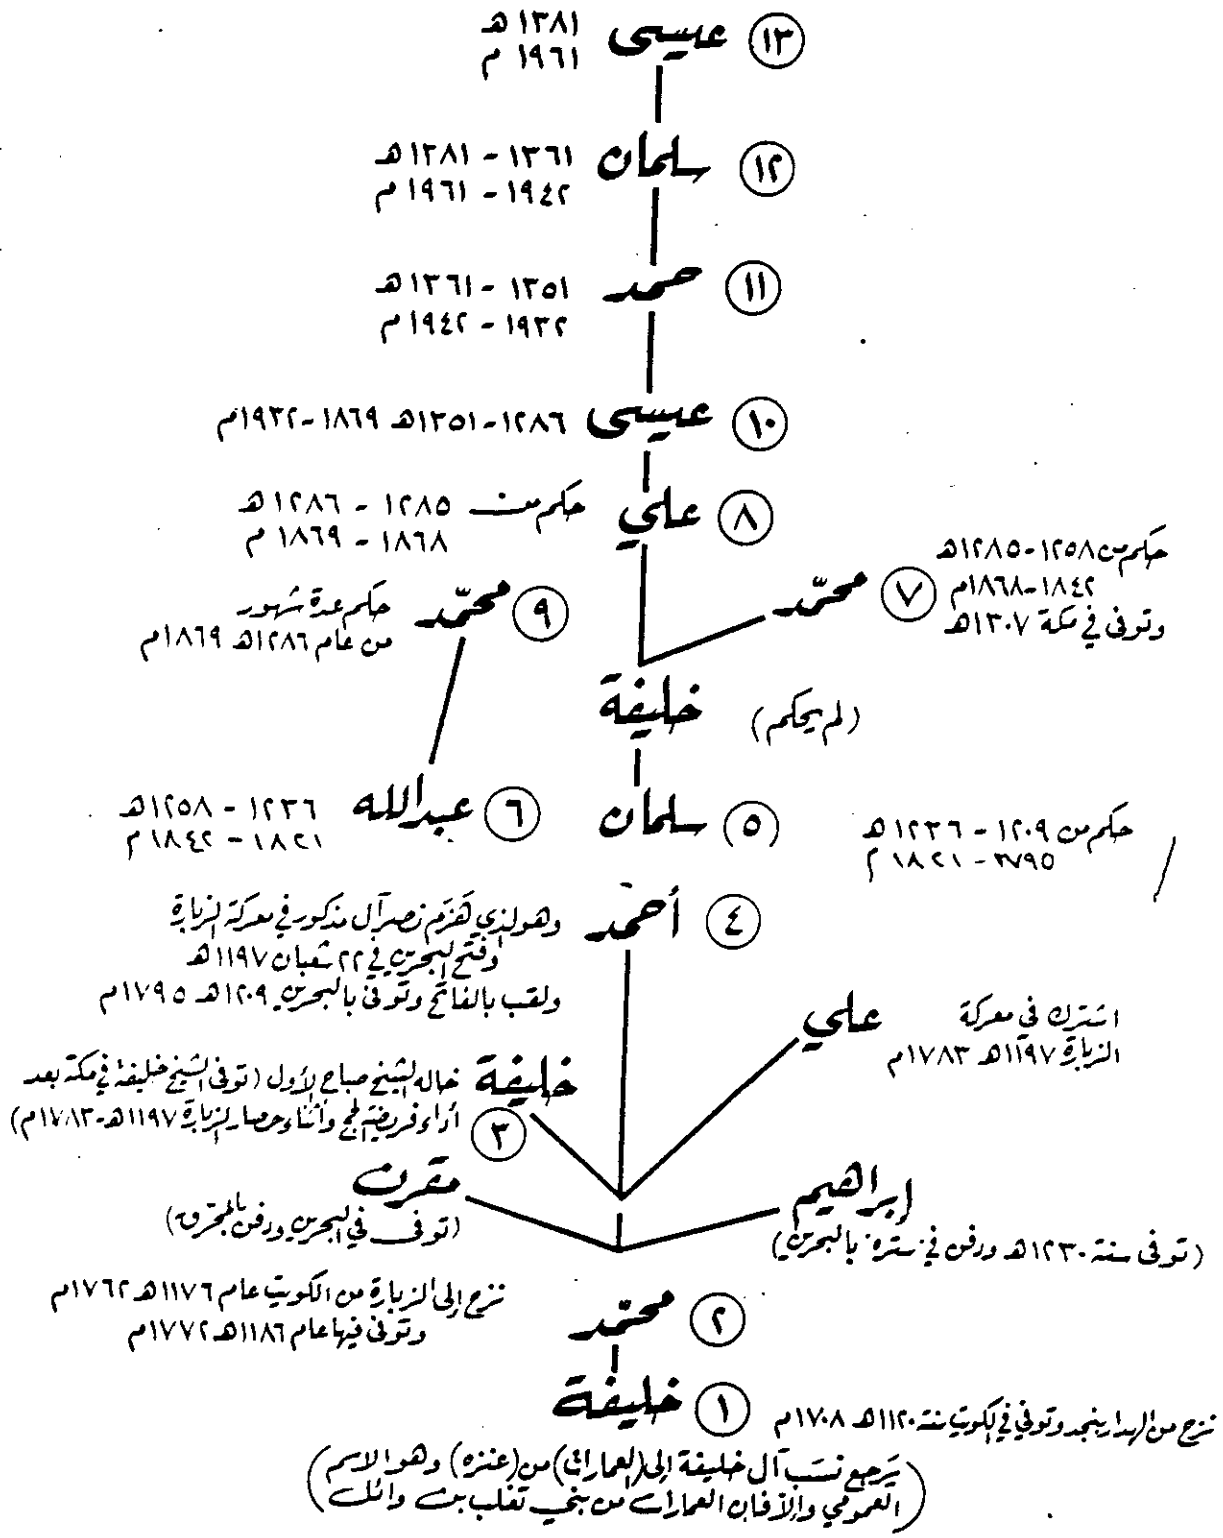 ١٣ عيسى ١٣٨١ هـ
١٩٦١ م
١٢ سلمان ١٣٦١ - ١٣٨١ هـ
١٩٤٢ - ١٩٦١ م
١١ حمد ١٣٥١ - ١٣٦١ هـ
١٩٣٢ - ١٩٤٢ م
١٠ عيسى ١٢٨٦ - ١٣٥١ هـ ١٨٦٩ - ١٩٣٢ م
٨ علي حكم من ١٢٨٥ - ١٢٨٦ هـ
١٨٦٨ - ١٨٦٩ م
٧ محمّد
حكم من ١٢٥٨ - ١٢٨٥ هـ
١٨٤٢ - ١٨٦٨ م
وتوفى في مكة ١٣٠٧ هـ
٩ محمّد حكم عدة شهور
من عام ١٢٨٦ هـ ١٨٦٩ م
خليفة (لم يحكم)
٥ سلمان
حكم من ١٢٠٩ - ١٢٣٦ هـ
١٨٢١ م
٦ عبدالله ١٢٣٦ - ١٢٥٨ هـ
١٨٢١ - ١٨٤٢ م
٤ أحمد وهو الذي هَزَم نصر آل مذكور في معركة الزبارة
وفتح البحرين في ٢٢ شعبان ١١٩٧ هـ
ولقب بالفاتح وتوفى بالبحرين ١٢٠٩ هـ ١٧٩٥ م
علي اشترك في معركة
الزبارة ١١٩٧ هـ ١٧٨٣ م
٣ خليفة خاله الشيخ صباح الأول (توفى الشيخ خليفة في مكة بعد
أداء فريضة الحج وأثناء حصار الزبارة ١١٩٧ هـ - ١٧٨٣ م)
إبراهيم
(توفى سنة ١٢٣٠ هـ ودفن في سترة بالبحرين)
مقرن
(توفى في البحرين ودفن بالمحرق)
٢ محمّد نزح إلى الزبارة من الكويت عام ١١٧٦ هـ ١٧٦٢ م
وتوفى فيها عام ١١٨٦ هـ ١٧٧٢ م
١ خليفة
نزح من الهدار بنجد وتوفي في الكويت سنة ١١٢٠ هـ ١٧٠٨ م
(يَرجع نسَب آل خليفة إلى (العمارات) من (عنزه) وهو الاسم
العمومي وإلا فإن العمارات من بني تغلب بن وائل)